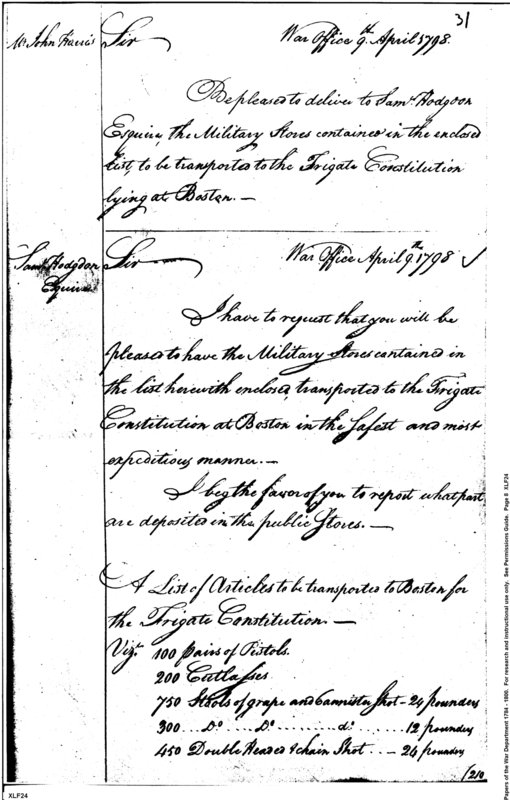 31
Mr. John Harris
Sir
War Office 9th. April 1798.
Be pleased to deliver to Saml. Hodgdon
Esquire, the Military Stores contained in the enclosed
list, to be transported to the Frigate Constitution
lying at Boston. —
Saml. Hodgdon
Esquire
Sir
War Office April 9th. 1798
I have to request that you will be
pleased to have the Military Stores contained in
the list herewith enclosed, transported to the Frigate
Constitution at Boston in the safest and most
expeditious manner. —
I beg the favor of you to report what part
are deposited in the public Stores. —
A List of Articles to be transported to Boston for
the Frigate Constitution. —
Vizt. 100 pairs of Pistols.
200 Cutlasses
750 Stools of grape and cannister Shot - 24 pounders
300 .. Do. .. Do. ........ do. ...... 12 pounders
450 Double Headed & chain Shot ... - 24 pounders
/210
XLF24
Papers of the War Department 1784 - 1800. For research and instructional use only. See Permissions Guide. Page 8 XLF24